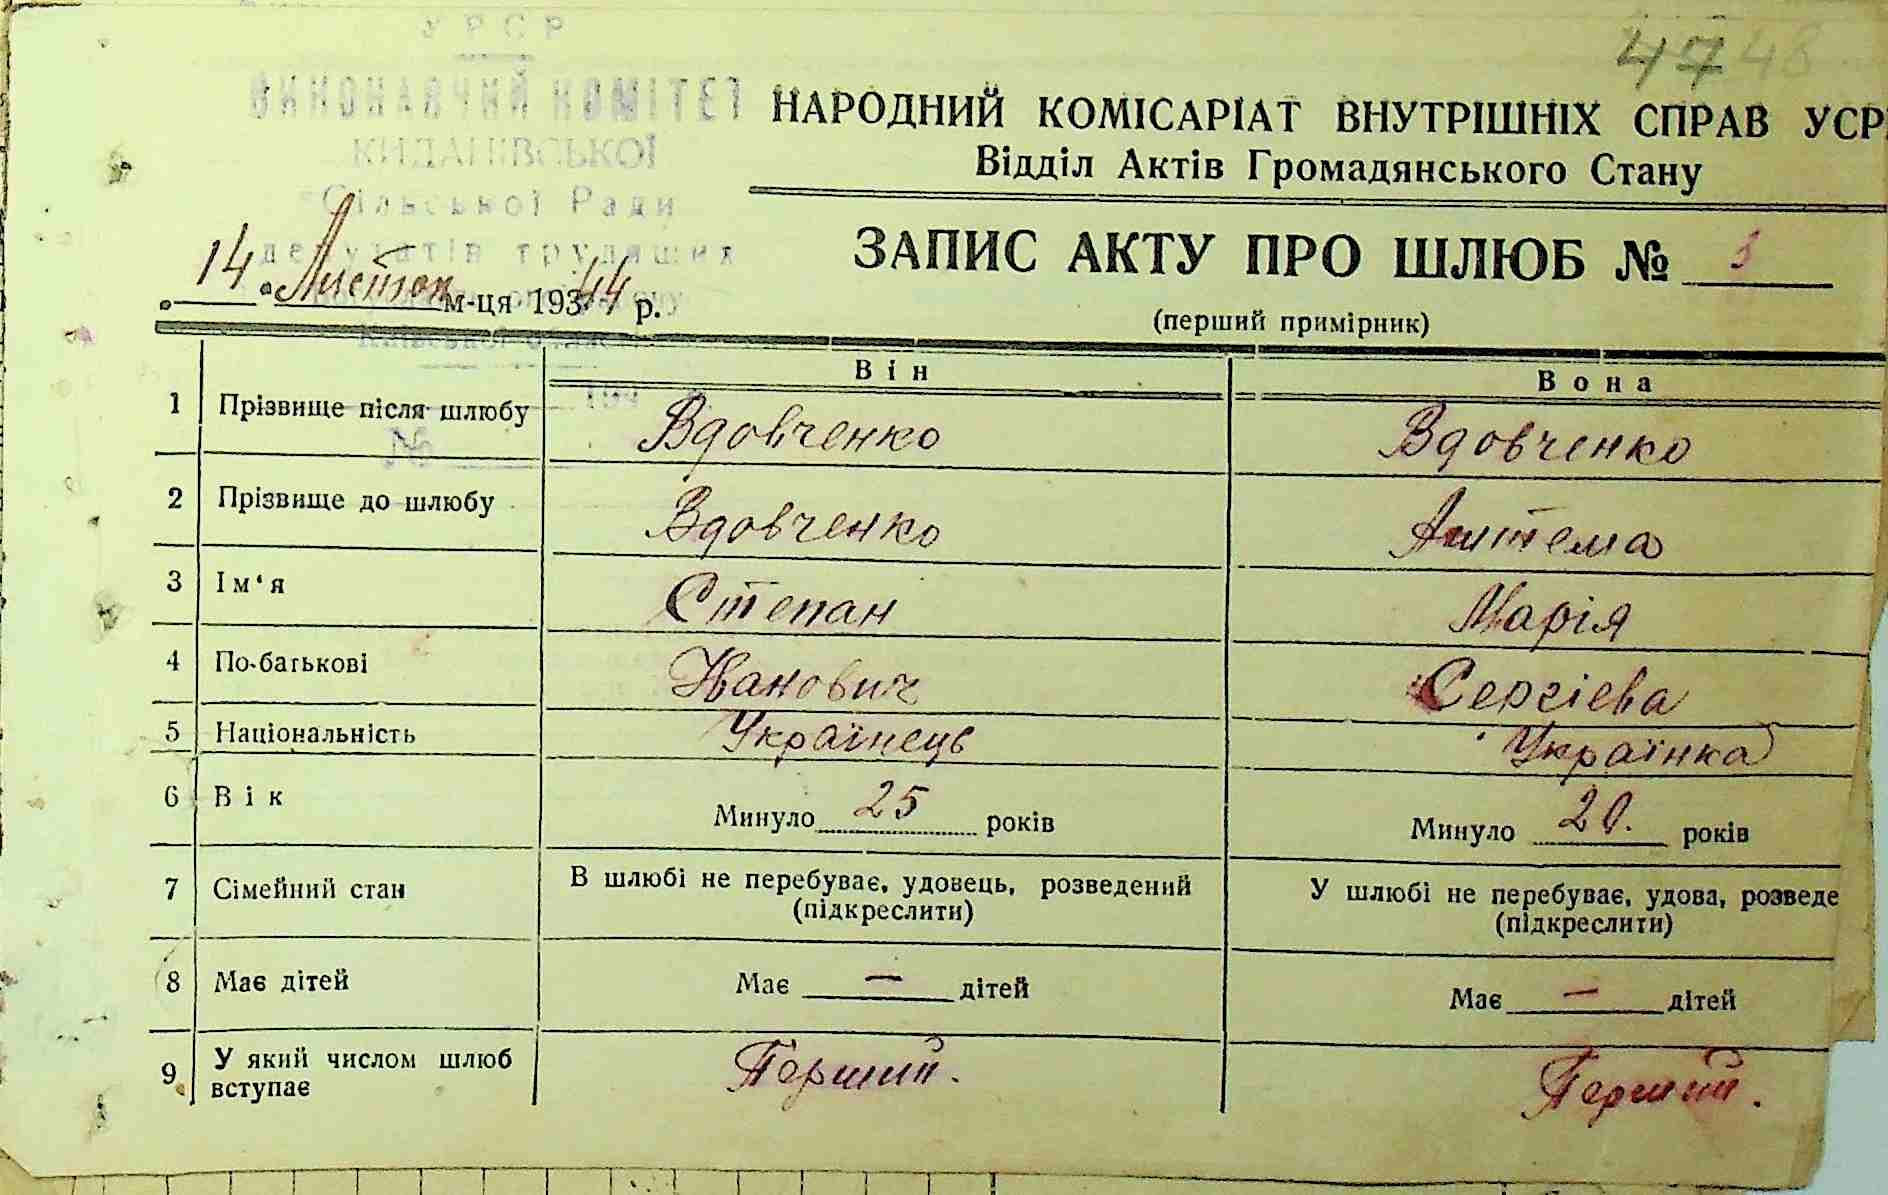 47 48
УРСР
ВИКОНАВЧИЙ КОМІТЕТ
КИДАНІВСЬКОЇ
Сільської Ради
депутатів трудящих
Київської області
194
№
НАРОДНИЙ КОМІСАРІАТ ВНУТРІШНІХ СПРАВ УСР
Відділ Актів Громадянського Стану
ЗАПИС АКТУ ПРО ШЛЮБ № 3
14 Листоп м-ця 19344 р.
(перший примірник)
Він Вона
1 Прізвище після шлюбу Вдовченко Вдовченко
2 Прізвище до шлюбу Вдовченко
3 Ім‘я Степан Марія
4 По-батькові Иванович Сергієва
5 Національність Українець Українка
6 Вік Минуло 25 років Минуло 20. років
7 Сімейний стан В шлюбі не перебуває, удовець, розведений У шлюбі не перебуває, удова, розведе
(підкреслити) (підкреслити)
8 Має дітей Має — дітей Має — дітей
9 У який числом шлюб вступає Перший. Перший.